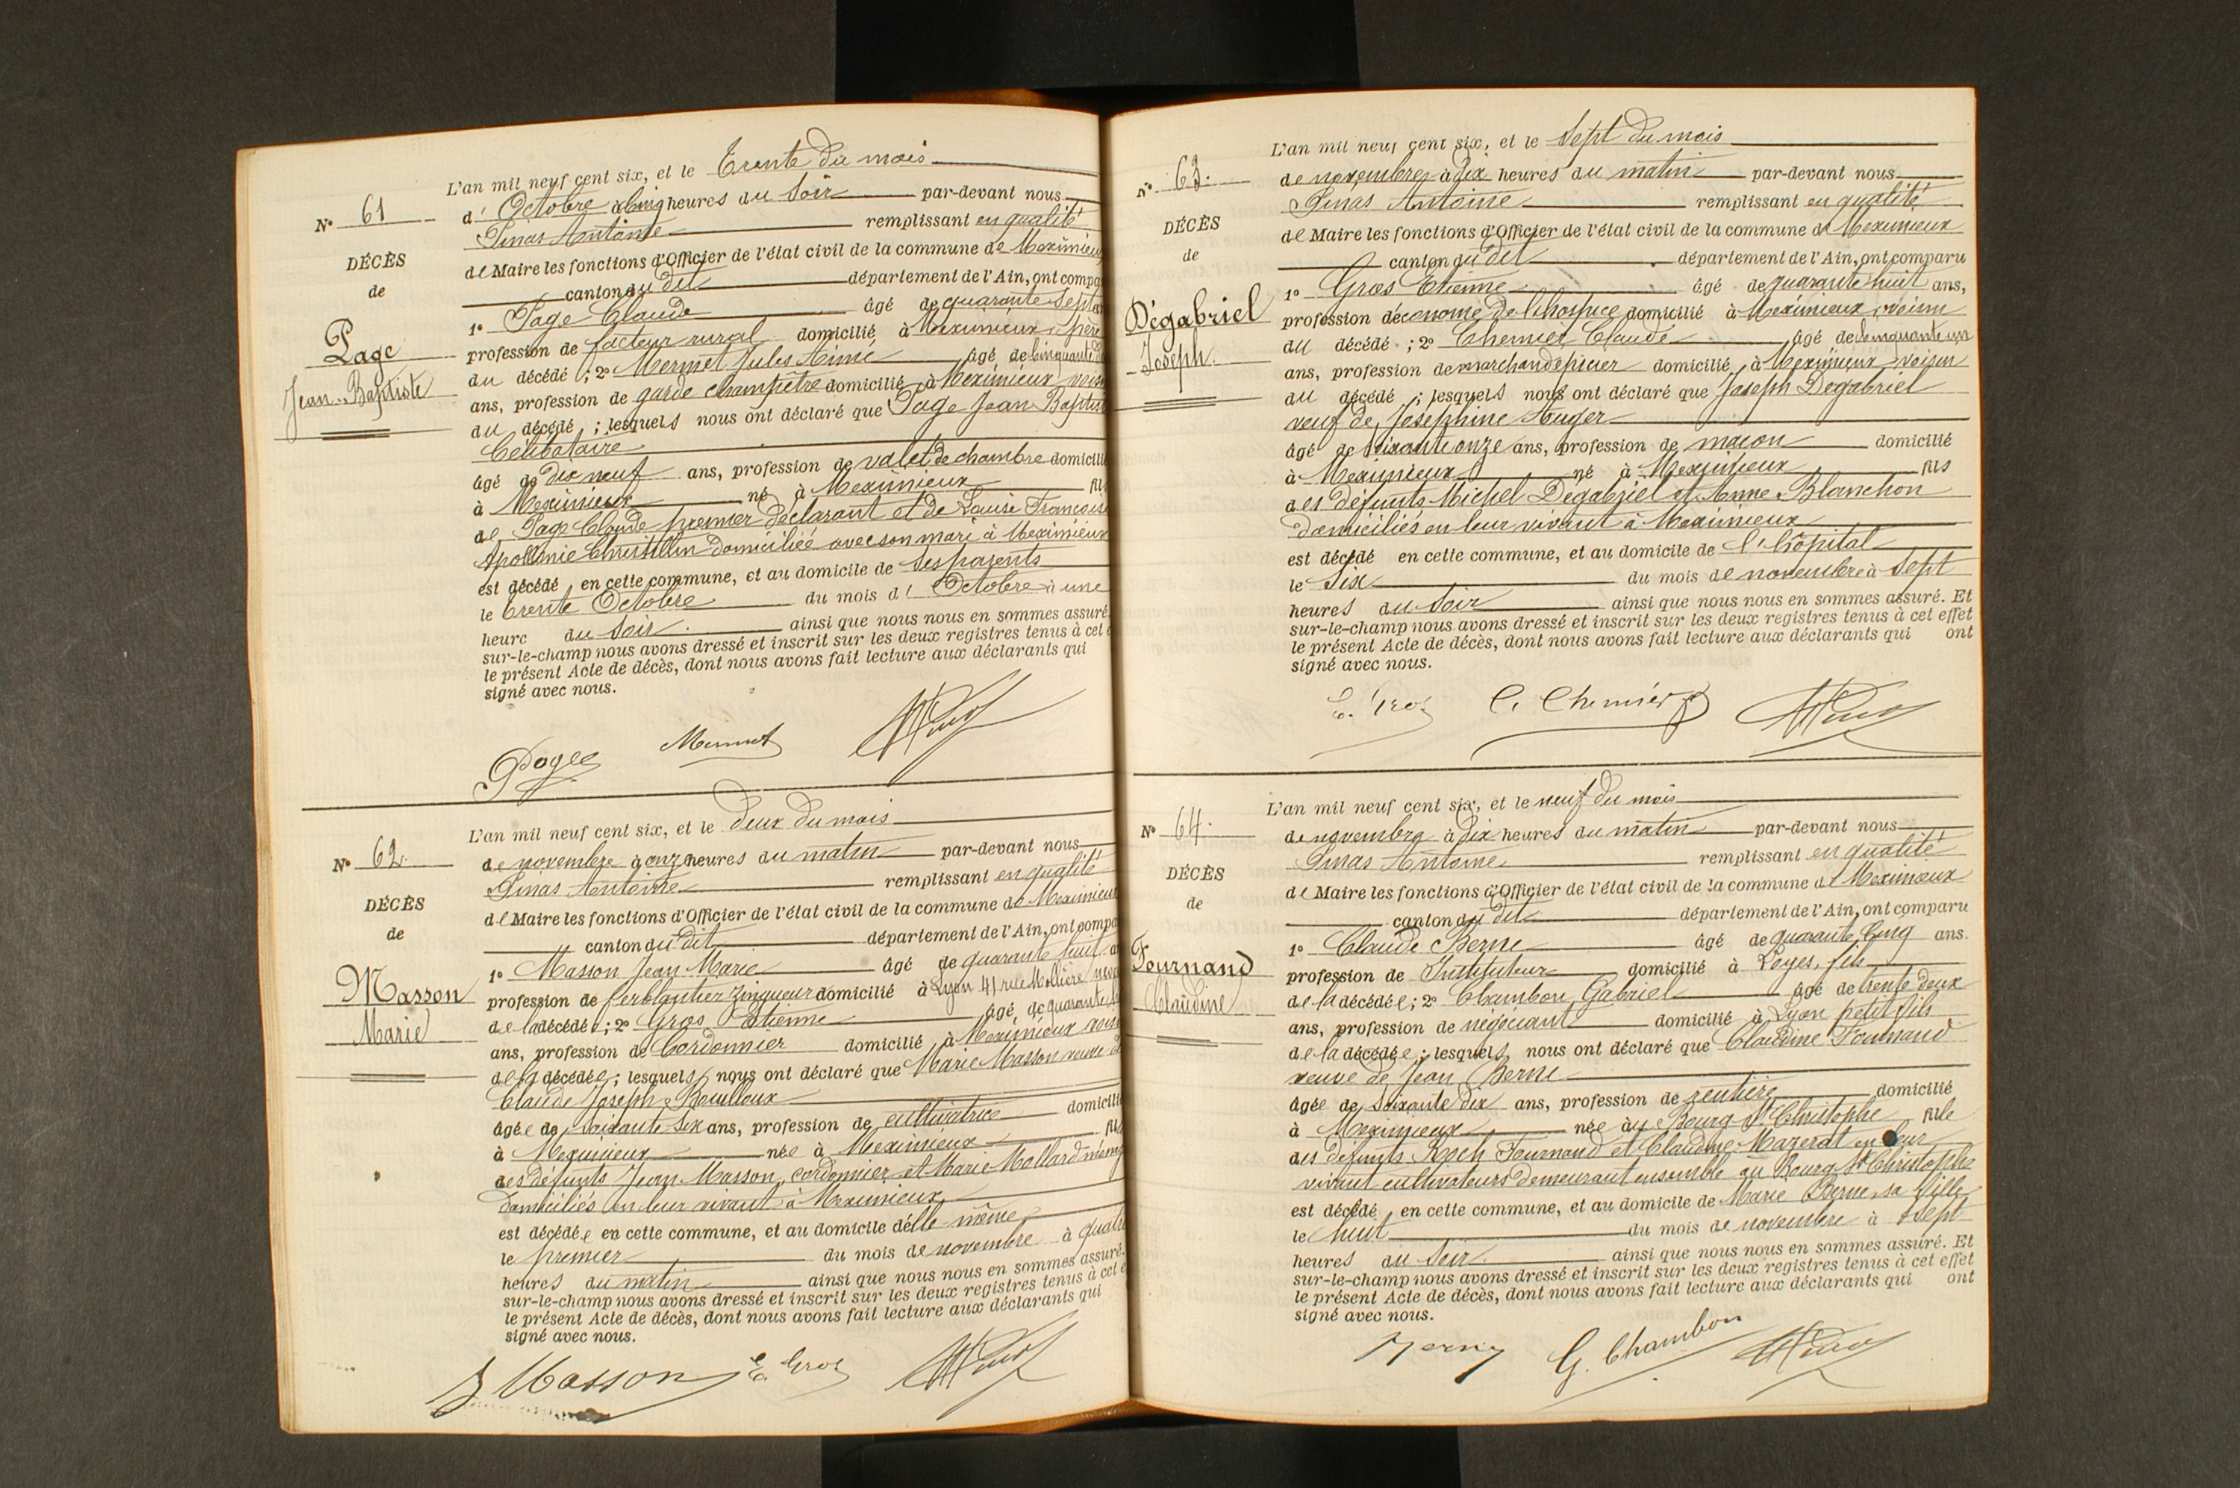 N° 61
DÉCÈS
de
Page
Jean-Baptiste
L'an mil neuf cent six, et le Trente du mois
d' Octobre à cinq heures du Soir par-devant nous
Pinas Antoine remplissant en qualité
de Maire les fonctions d'Officier de l'état civil de la commune de Meximieux
canton du dit département de l'Ain, ont compa
1° Page Claude âgé de quarante sept
profession de facteur rural domicilié à Meximieux, père
du décédé ; 2° Mermet Jules Aimé âgé de cinquante
ans, profession de garde champêtre domicilié à Meximieux voisin
du décédé ; lesquels nous ont déclaré que Page Jean Baptiste
Célibataire
âgé de dix neuf ans, profession de valet de chambre domicilié
à Meximieux né à Meximieux fils
de Page Claude premier déclarant et de Louise Françoise
Apollonie domiciliée avec son mari à Meximieux
est décédé en cette commune, et au domicile de ses parents
le trente Octobre du mois d' Octobre à une
heure du Soir ainsi que nous nous en sommes assuré.
sur-le-champ nous avons dressé et inscrit sur les deux registres tenus à cet e
le présent Acte de décès, dont nous avons fait lecture aux déclarants qui
signé avec nous.
Page Mermet
N° 62.
DÉCÈS
de
Masson
Marie
L'an mil neuf cent six, et le deux du mois
de novembre à onze heures du matin par-devant nous
Pinas Antoine remplissant en qualité
de Maire les fonctions d'Officier de l'état civil de la commune de Meximieux
canton du dit département de l'Ain, ont compa
1° Masson Jean Marie âgé de quarante huit an
profession de ferblantier zingueur domicilié à Lyon 41 rue Molière neveu
de la décédée ; 2° Gros Etienne âgé de quarante
ans, profession de Cordonnier domicilié à Meximieux voisin
de la décédée ; lesquels nous ont déclaré que Marie Masson veuve de
Claude Joseph Bouilloux
âgée de soixante six ans, profession de cultivatrice domicilié
à Meximieux née à Meximieux fille
des défunts Jean Masson, cordonnier et Marie Mollard
Domiciliés en leur vivant à Meximieux
est décédée en cette commune, et au domicile d'elle même
le premier du mois de novembre à quatre
heures du matin ainsi que nous nous en sommes assuré.
sur-le-champ nous avons dressé et inscrit sur les deux registres tenus à cet e
le présent Acte de décès, dont nous avons fait lecture aux déclarants qui
signé avec nous.
Masson E. Gros
N° 63.
DÉCÈS
de
Dégabriel
Joseph.
L'an mil neuf cent six, et le Sept du mois
de novembre à Dix heures du matin par-devant nous
Pinas Antoine remplissant en qualité
de Maire les fonctions d'Officier de l'état civil de la commune de Meximieux
canton du dit département de l'Ain, ont comparu
1° Gros Etienne âgé de quarante huit ans,
profession d'économe de l'hospice domicilié à Meximieux, voisin
du décédé ; 2° Chemier Claude âgé de cinquante un
ans, profession de marchand épicier domicilié à Meximieux voisin
du décédé ; lesquels nous ont déclaré que Joseph Dégabriel
veuf de Joséphine Auger
âgé de soixante onze ans, profession de maçon domicilié
à Meximieux né à Meximieux fils
des défunts Michel Dégabriel et Anne Blanchon
Domiciliés en leur vivant à Meximieux
est décédé en cette commune, et au domicile de l'hôpital
le Six du mois de novembre à Sept
heures du Soir ainsi que nous nous en sommes assuré. Et
sur-le-champ nous avons dressé et inscrit sur les deux registres tenus à cet effet
le présent Acte de décès, dont nous avons fait lecture aux déclarants qui ont
signé avec nous.
E. Gros C. Chemier
N° 64.
DÉCÈS
de
Fournand
Claudine
L'an mil neuf cent six, et le neuf du mois
de novembre à Dix heures du matin par-devant nous
Pinas Antoine remplissant en qualité
de Maire les fonctions d'Officier de l'état civil de la commune de Meximieux
canton du dit département de l'Ain, ont comparu
1° Claude Berne âgé de quarante cinq ans.
profession de Instituteur domicilié à Loyes, fils
de la décédée ; 2° Chambon Gabriel âgé de trente deux
ans, profession de négociant domicilié à Lyon petit fils
de la décédée ; lesquels nous ont déclaré que Claudine Fournand
veuve de Jean Berne
âgée de soixante dix ans, profession de rentière domicilié
à Meximieux née au Bourg St Christophe fille
des défunts Roch Fournand et Claudine Mazerat en leur
vivant cultivateurs demeurant ensemble au Bourg St Christophe
est décédé en cette commune, et au domicile de Marie Berne, sa fille
le huit du mois de novembre à sept
heures du Soir ainsi que nous nous en sommes assuré. Et
sur-le-champ nous avons dressé et inscrit sur les deux registres tenus à cet effet
le présent Acte de décès, dont nous avons fait lecture aux déclarants qui ont
signé avec nous.
Berne G. Chambon